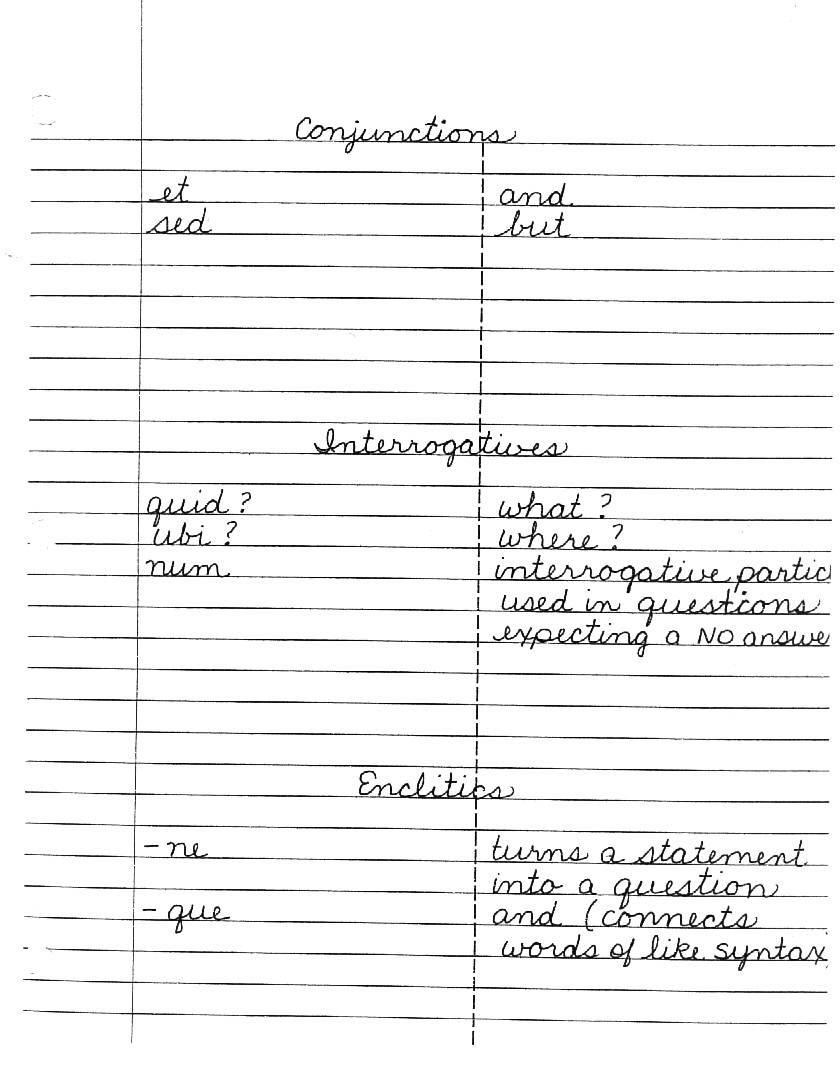 Conjunctions
et and
sed but
Interrogatives
quid? what?
ubi? where?
num interrogative partic
used in questions
expecting a NO answe
Enclitics
-ne turns a statement
into a question
-que and (connects
words of like syntax